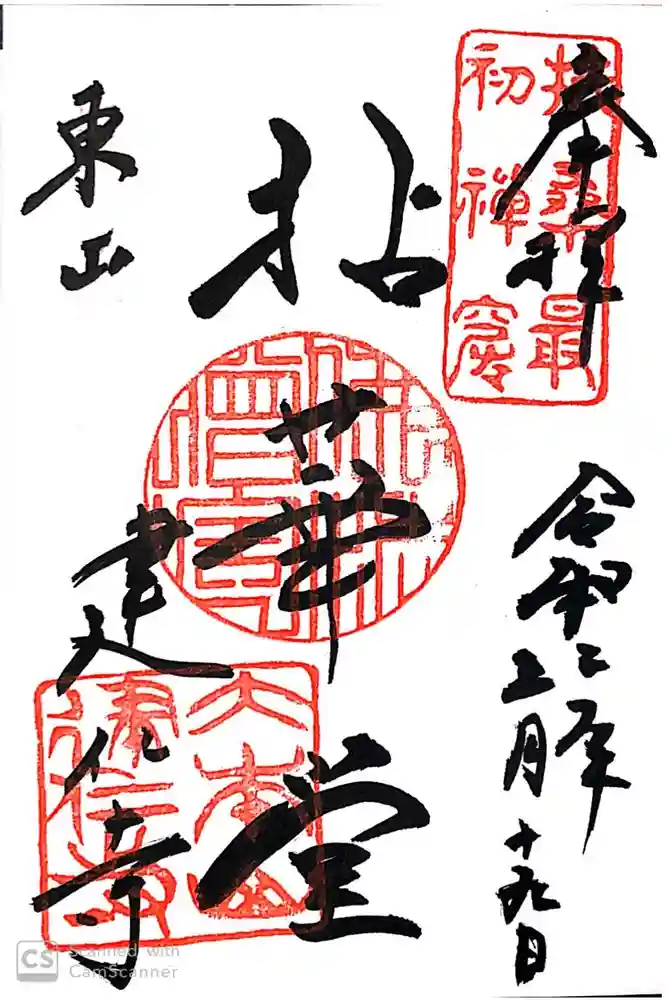 奉拝
扶桑最
初禪窟
令和二年
月十九日
拈華堂
東山
建仁寺
大本山
建仁寺
CS Scanned with
CamScanner